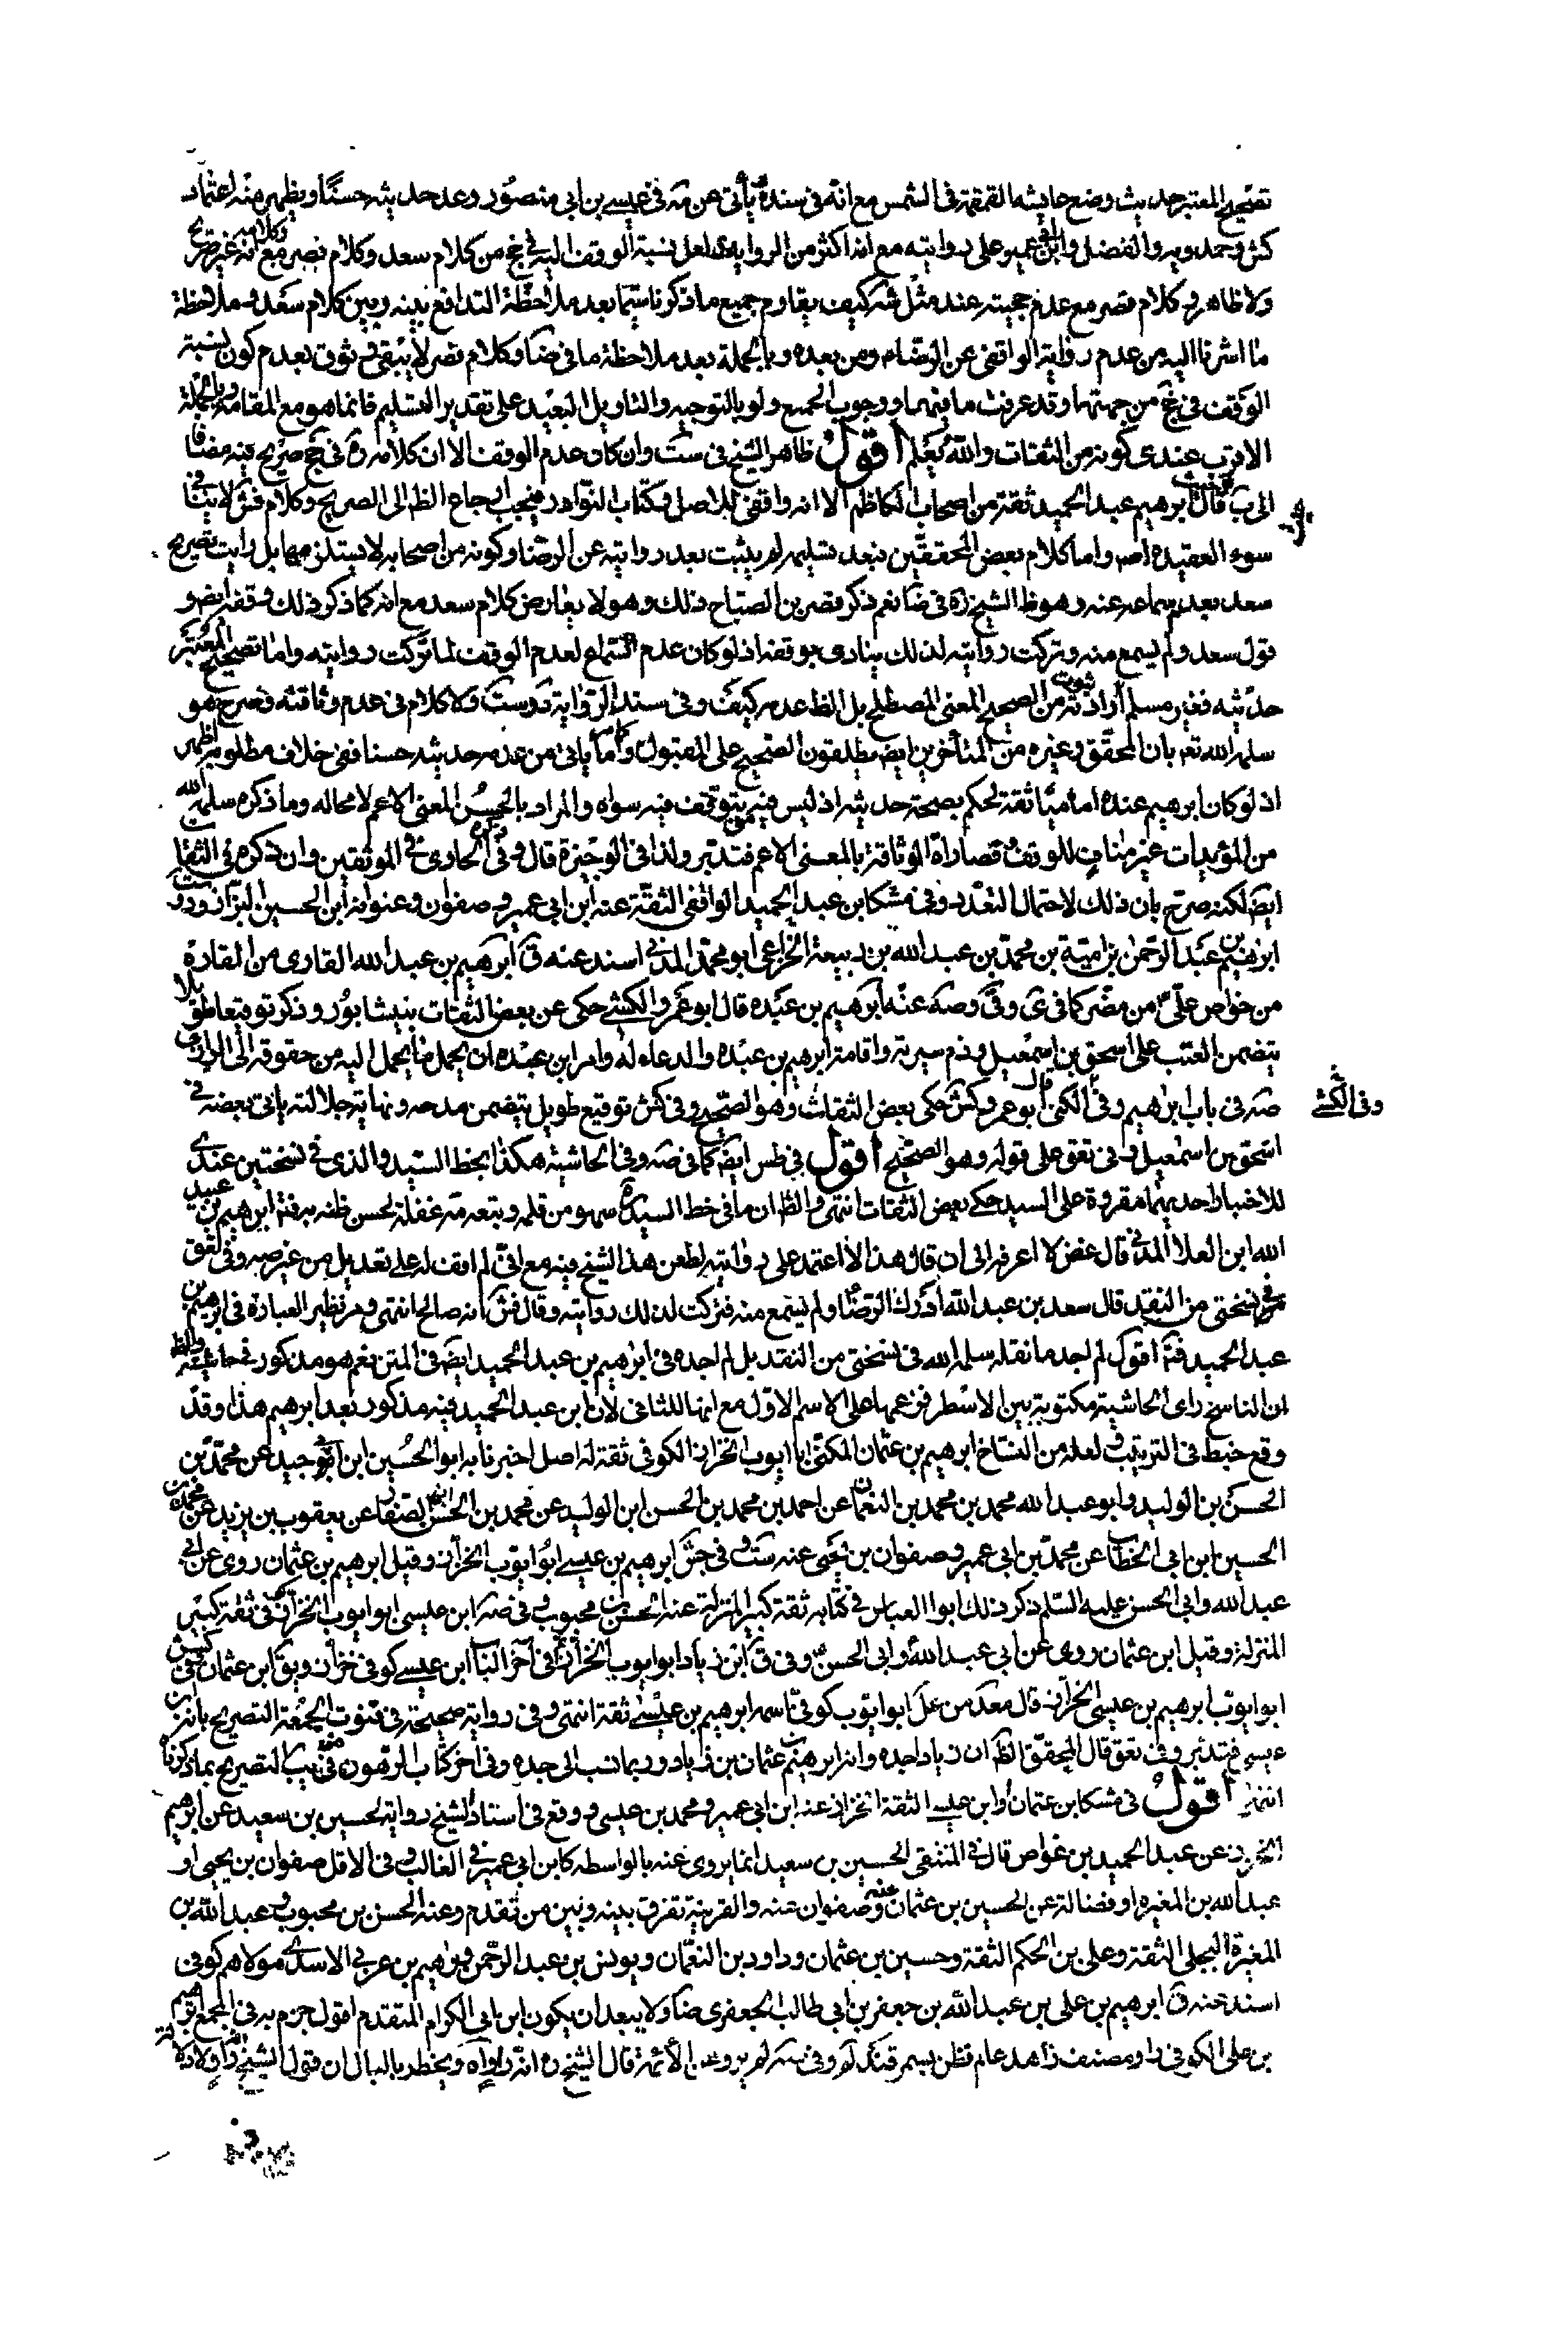 تصحيح المعتبر حديث وضع عايشه القمقمة فى الشمس مع انه فى سنده يأتى عن مه فى عيسى بن ابى منصور وعد حديثه حسنا ويظهر منه اعتماد
كش وحمدويه والفضل وابن ابى عمير على روايته مع انه اكثر من الرواية لعل نسبة الوقف اليه فى جخ من كلام سعد وكلام نصر مع انه غير صريح
ولا ظاهر وكلام نصر مع عدم حجيته عند مثل شه كيف يقاوم جميع ما ذكرنا سيما بعد ملاحظة التدافع بينه وبين كلام سعد وملاحظة
ما اشرنا اليه من عدم رواية الواقفى عن الرضا ومن بعده وبالجملة بعد ملاحظة ما فى ضا وكلام نصر لا يبقى وثوق بعدم كون نسبة
الوقف فى جخ من جهتها وقد عرفت ما فيهما ووجوب الجمع ولو بالتوجيه والتاويل البعيد على تقدير التسليم فانما هو مع المقاومة وبالجملة
الاقرب عندى كونه من الثقات والله يعلم اقول ظاهر الشيخ فى ست وان كان عدم الوقف الا ان كلامه ره فى جخ صريح فيه مضافا
الى قال ابرهيم عبد الحميد ثقة من اصحاب الكاظم الا انه واقفى له اصل وكتاب النوادر فيجب ارجاع الظ الى الصريح وكلام فش لا ينافى
سوء العقيدة اصلا واما كلام بعض المحققين فبعد تسليمه لم يثبت بعد روايته عن الرضا وكونه من اصحابه لا يستلزمها بل رايت تصريح
سعد بعدم سماعه عنه وهو ظ الشيخ ره فى ضا نعم ذكر نصر بن الصباح ذلك وهو لا يعارض كلام سعد مع انه كما ذكر ذلك وقفه ايض و
قول سعد ولم يسمع منه وتركت روايته لذلك ينادى بوقفه اذ لو كان عدم السماع لعدم الوقف لما تركت روايته واما تصحيح المعتبر
حديثه فغير مسلم ارادته من الصحيح المعنى المصطلح بل الظ عدمه كيف وفى سند الرواية درست ولا كلام فى عدم وثاقته وصرح هو
سلمه الله تعه بان المحقق وغيره من المتأخرين ايض يطلقون الصحيح على المقبول واما ما يأتى من عد مه حديثه حسنا ففى خلاف مطلوبه اظهر
اذ لو كان ابرهيم عنده اماميا ثقة لحكم بصحة حديثه اذ ليس فيه من يتوقف فيه سواه والمراد بالحسن المعنى الاعم لا محاله وما ذكره سلمه الله
من المؤيدات غير مناف للوقف وقصاراه الوثاقة بالمعنى الاعم فتدبر ولذا فى الوجيزة قال ق وذكره فى الحاوى فى الموثقين وان ذكره فى الثقات
ايض لكنه صرح بان ذلك لاحتمال التعدد وفى مشكا ابن عبد الحميد الواقفى الثقة عنه ابن ابى عمير وصفوان وعنوانه ابن الحسين البزاز ودرست
ابرهيم بن عبد الرحمن بن امية بن محمد بن عبد الله بن ربيعة الخزاعى ابو محمد المدنى اسند عنه ق ابرهيم بن عبد الله القارى من القارة
من خواص على من مضر كما فى ى وفى وصه عنه ابرهيم بن عبده قال ابو عمرو الكشى حكى عن بعض الثقات بنيشابور وذكر توقيعا طويلا
يتضمن العتب على اسحق بن اسمعيل وذم سيرته واقامة ابرهيم بن عبده والدعاء له وامر ابن عبده ان يحمل ما يحمل اليه من حقوقه الى الرازى
وفى الكشى
صه فى باب ابرهيم وفى الكنى قال ابو عمرو كش حكى بعض الثقات وهو الصحيح وفى كش توقيع طويل يتضمن مدحه ونهاية جلالته يأتى بعضه فى
اسحق بن اسمعيل وفى تعق على قوله وهو الصحيح اقول فى طس ايض كما فى صه وفى الحاشية هكذا بخط السيد والذى فى نسختين عندى
للاختيار احديهما مقروة على السيد حكى بعض الثقات انتهى والظ ان ما فى خط السيد سهو من قلمه وتبعه مه غفلة لحسن ظنه به فتم ابرهيم بن عبيد
الله ابن العلا المدنى قال غض لا اعرفه الى ان قال هذا لا اعتمد على روايته لطعن هذا الشيخ فيه مع انى لم اقف له على تعديل من غيره صه وفى تعق
فى نسختى من النقد قال سعد بن عبد الله ادرك الرضا ولم يسمع منه فتركت لذلك روايته وقال فش انه صالح انتهى ومر نظير العبارة فى ابرهيم بن
عبد الحميد فتم اقول لم اجد ما نقله سلمه الله فى نسختى من النقد بل لم اجده فى ابرهيم بن عبد الحميد ايض فى المتن نعم هو مذكور فى حاشيته والظ
ان الناسخ راى الحاشية مكتوبة بين الاسطر فزعمها على الاسم الاول مع انها للثانى لان ابن عبد الحميد فيه مذكور بعد ابرهيم هذا وقد
وقع خبط فى الترتيب ولعله من النساخ ابرهيم بن عثمان المكنى ابا ايوب الخزاز الكوفى ثقة له اصل اخبرنا به ابو الحسين ابن ابى جيد عن محمد بن
الحسن بن الوليد وابو عبد الله محمد بن محمد بن النعمان عن احمد بن محمد بن الحسن ابن الوليد عن محمد بن الحسن الصفار عن يعقوب بن يزيد عن محمد بن
الحسين ابن ابى الخطاب عن محمد بن ابى عمير وصفوان بن يحيى عنه ست وفى جش ابرهيم بن عيسى ابو ايوب الخزاز وقيل ابرهيم بن عثمان روى عن ابى
عبد الله وابى الحسن عليه السلم ذكر ذلك ابو العباس فى كتابه ثقة كبير المنزلة عنه الحسن بن محبوب وفى صه ابن عيسى ابو ايوب الخزاز كوفى ثقة كبير
المنزلة وقيل ابن عثمان روى عن ابى عبد الله وابى الحسن وفى ق ابن زياد ابو ايوب الخزاز وفى آخر الباب ابن عيسى كوفى خزاز ويق ابن عثمان وفى كش
ابو ايوب ابرهيم بن عيسى الخزاز قال محمد بن مسعود عن على ابو ايوب كوفى اسمه ابرهيم بن عيسى ثقة انتهى وفى رواية صحيحة فى قنوت الجمعة التصريح بانه ابن
عيسى فتدبر وفى تعق قال المحقق الظ ان زياد جده وانه ابرهيم بن عثمان بن زياد وربما نسب الى جده وفى اخر كتاب الرهون من يب التصريح بما ذكرنا
انتهى اقول فى مشكا ابن عثمان وابن عيسى الثقة الخزاز عنه ابن ابى عمير ومحمد بن عيسى ووقع فى اسناد الشيخ رواية الحسين بن سعيد عن ابرهيم
الخزاز عن عبد الحميد بن عواض قال فى المنتقى الحسين بن سعيد انما يروى عنه بالواسطه كابن ابى عمير فى الغالب وفى الاقل صفوان بن يحيى او
عبد الله بن المغيره او فضالة عن الحسين بن عثمان عنه وصفوان عنه والقرينة تفرق بينه وبين من تقدم وعنه الحسن بن محبوب وعبد الله بن
المغيرة البجلى الثقة وعلى بن الحكم الثقة وحسين بن عثمان وداود بن النعمان ويونس بن عبد الرحمن ابرهيم بن عربى الاسدى مولاهم كوفى
اسند عنه ق ابرهيم بن على بن عبد الله بن جعفر بن ابى طالب الجعفرى ضا ولا يبعد ان يكون ابن ابى الكرام المتقدم اقول جزم به فى المجمع ابرهيم
بن على الكوفى راو مصنف زاهد عالم قطن بسمرقند لم وفى صه لم يرو عن الأئمة قال الشيخ ره انه راو اه ويخطر بالبال ان قول الشيخ